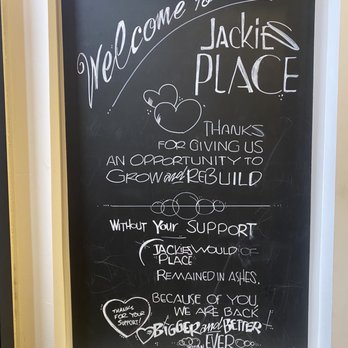 Welcome to
Jackies
PLACE
THANKS
FOR GIVING US
AN OPPORTUNITY TO
GROW and REBUILD
WITHOUT YOUR SUPPORT
JACKIES WOULD OF
PLACE
REMAINED IN ASHES.
BECAUSE OF YOU,
WE ARE BACK
BIGGER and BETTER
EVER
THANKS
FOR YOUR
SUPPORT!